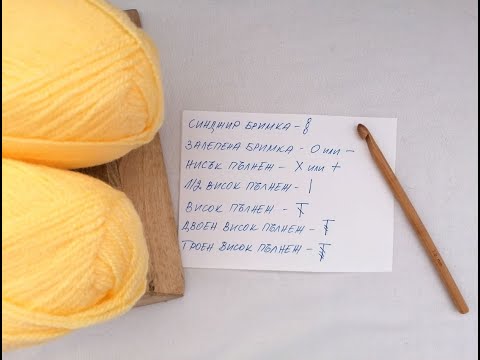 СИНДЖИР БРИМКА - 8
ЗАЛЕПЕНА БРИМКА - 0 ИЛИ –
НИСЪК ПЪЛНЕЖ - X ИЛИ +
1/2 ВИСОК ПЪЛНЕЖ - |
ВИСОК ПЪЛНЕЖ -
ДВОЕН ВИСОК ПЪЛНЕЖ -
ТРОЕН ВИСОК ПЪЛНЕЖ -